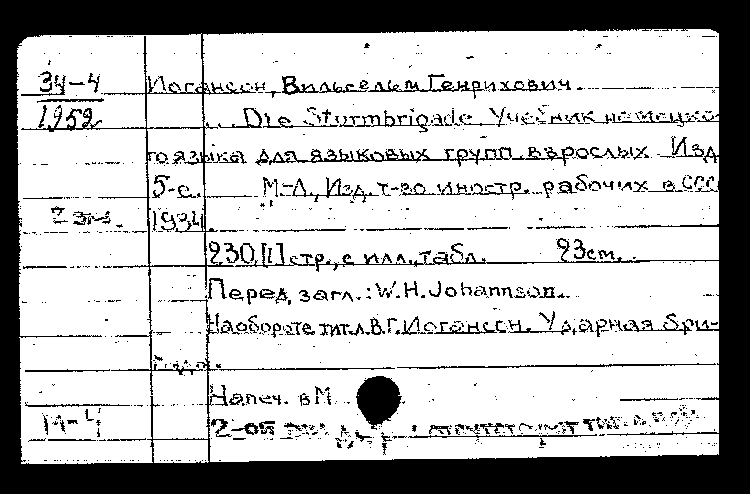 34-4 Иогансен, Вильгельм Генрихович.
1952 ... Die Sturmbrigade. Учебник немецко-
го языка для языковых групп взрослых. Изд.
5-е. М.-Л., Изд. т-во иностр. рабочих в ССС
2 экз. 1934.
230,[1] стр., с илл., табл. 23 cm.
Перед загл.: W.H. Johannson.
На обороте тит. л. В.Г. Иогансен. Ударная бри-
гада.
Напеч. в М.
14-4 2-ой отсутствует тит. л.